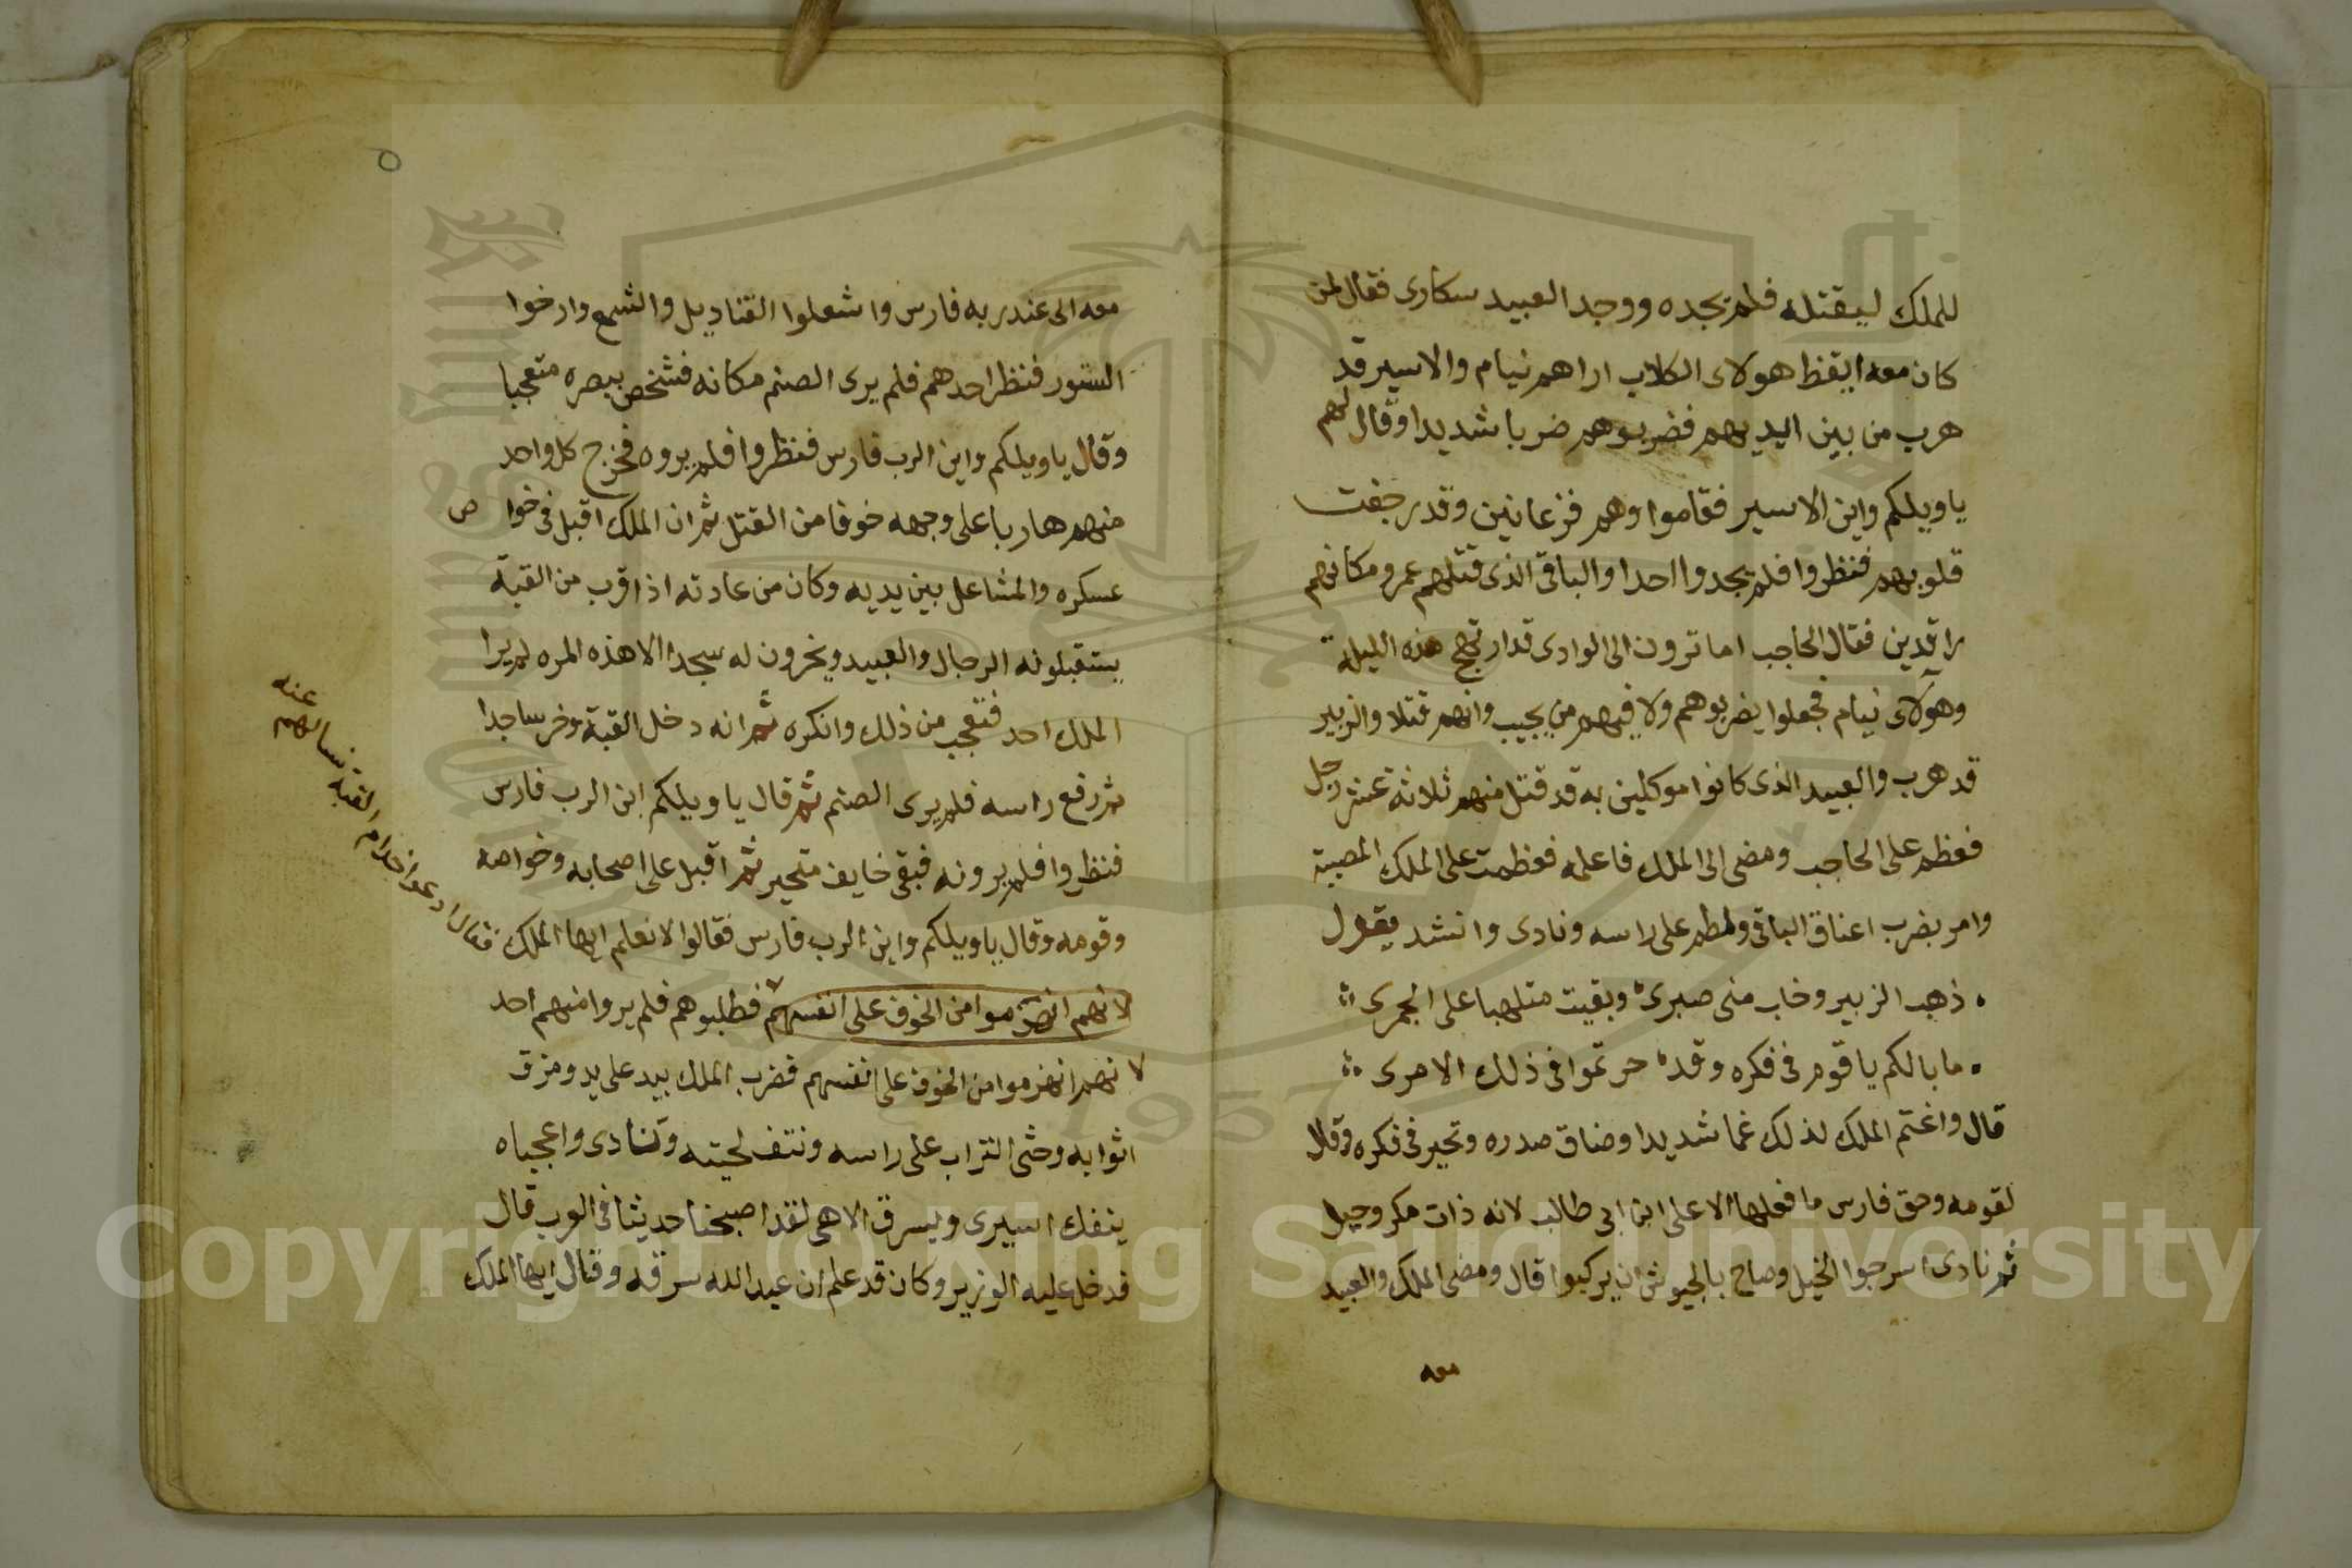 للملك ليقتله فلم يجده ووجد العبيد سكارى فقال لمن
كان معه ايقظ هولاى الكلاب اراهم نيام والاسير قد
هرب من بين ايديهم فضربوهم ضربا شديدا وقال لهم
ياويلكم واين الاسير فقاموا وهم فزعانين وقد رجفت
قلوبهم فنظروا فلم يجدوا احدا والباقى الذى قتلهم عمرو مكانهم
راقدين فقال الحاجب اما ترون الى الوادى قد ارتج هذه الليلة
وهولاى نيام فجعلوا يضربوهم ولا فيهم من يجيب وانهم قتلا والزبير
قد هرب والعبيد الذى كانوا موكلين به قد قتل منهم ثلاثة عشر رجل
فعظم على الحاجب ومضى الى الملك فاعلمه فعظمت على الملك المصيبة
وامر بضرب اعناق الباقى ولطم على راسه ونادى وانشد يقول
ذهب الزبير وخاب منى صبرى وبقيت متلهبا على الجمرى
ما بالكم يا قوم فى فكره وقد حرتموا فى ذلك الامرى
قال واغتم الملك لذلك غما شديدا وضاق صدره وتحير فى فكره وقال
لقومه وحق فارس ما فعلها الا على ابن ابى طالب لانه ذات مكر وحيل
ثم نادى اسرجوا الخيل وصاح بالجيوش ان يركبوا قال ومضى الملك والعبيد
معه
معه الى عند ربه فارس واشعلوا القناديل والشمع وارخوا
الستور فنظر احدهم فلم يرى الصنم مكانه فشخص ببصره متعجبا
وقال ياويلكم واين الرب فارس فنظروا فلم يروه فخرج كل واحد
منهم هاربا على وجهه خوفا من القتل ثم ان الملك اقبل فى خوا ص
عسكره والمشاعل بين يديه وكان من عادته اذا قرب من القبة
يستقبلونه الرجال والعبيد ويخرون له سجدا الا هذه المره لم يرا
الملك احد فتعجب من ذلك وانكره ثم انه دخل القبة وخر ساجدا
ثم رفع راسه فلم يرى الصنم ثم قال ياويلكم اين الرب فارس
فنظروا فلم يرونه فبقى خايف متحير ثم اقبل على اصحابه وخواصه
وقومه وقال ياويلكم واين الرب فارس فقالوا لا نعلم ايها الملك
فقال ادعوا خدام القبة نسالهم عنه
لانهم انهزموا من الخوف على انفسهم فطلبوهم فلم يروا منهم احد
لانهم انهزموا من الخوف على انفسهم فضرب الملك بيد على يد ومزق
اثوابه وحثى التراب على راسه ونتف لحيته ونادى واعجباه
ينفك اسيرى ويسرق الاهى لقد اصبحنا حديثا فى العرب قال
فدخل عليه الوزير وكان قد علم ان عبد الله سرقه وقال ايها الملك
Copyright © King Saud University
1957